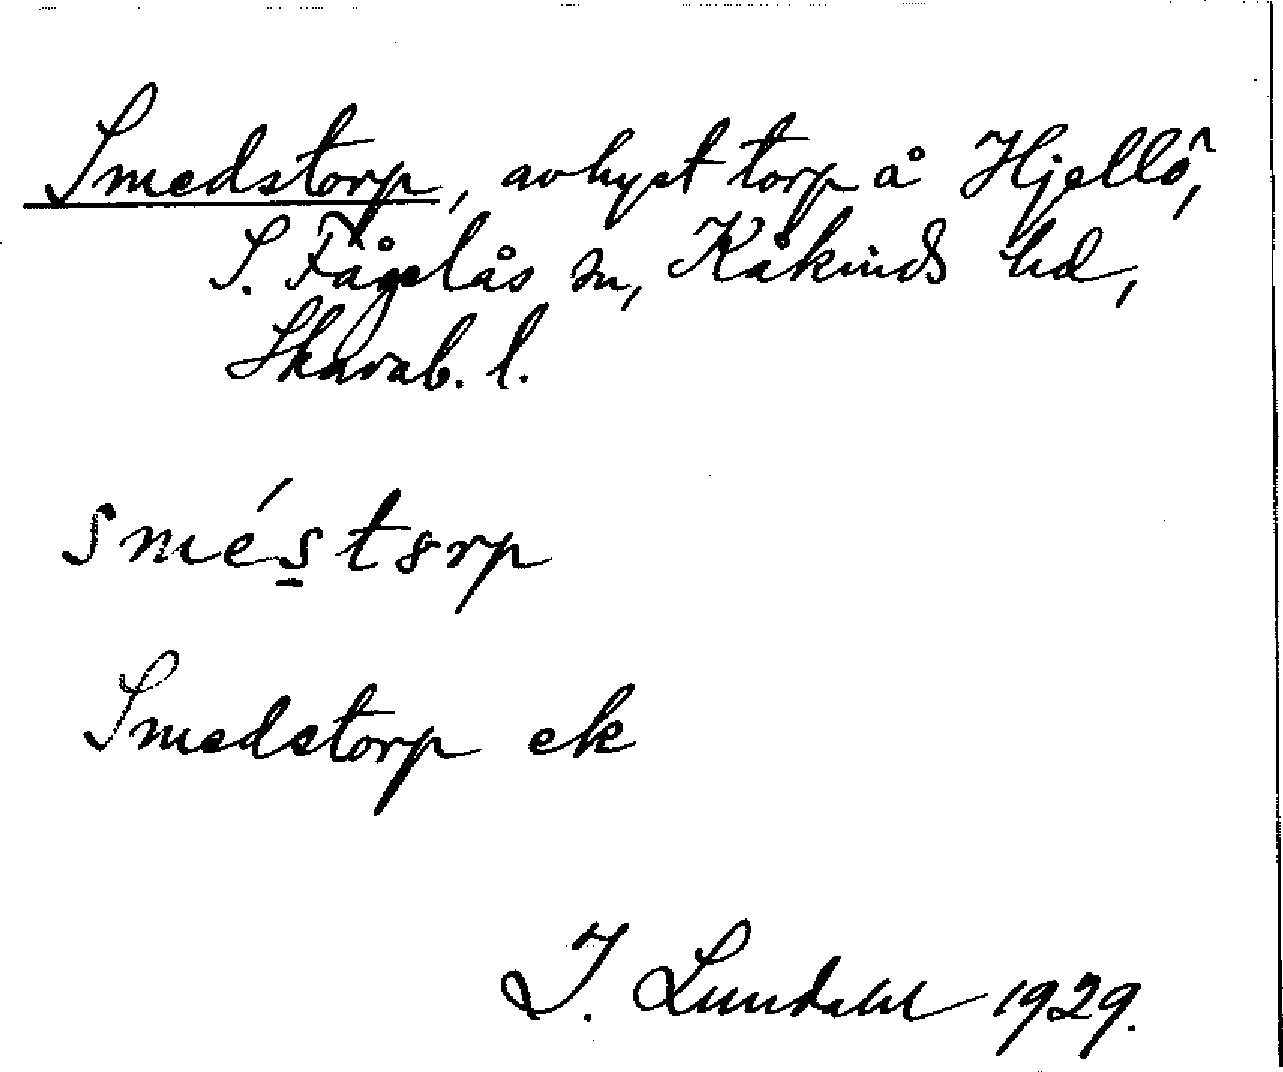 Smedstorp, avhyst torp å Hjellö,
S. Fågelås sn, Kåkinds hd,
Skarab. l.
smé̱storp
Smedstorp ek
I. Lundahl 1929.